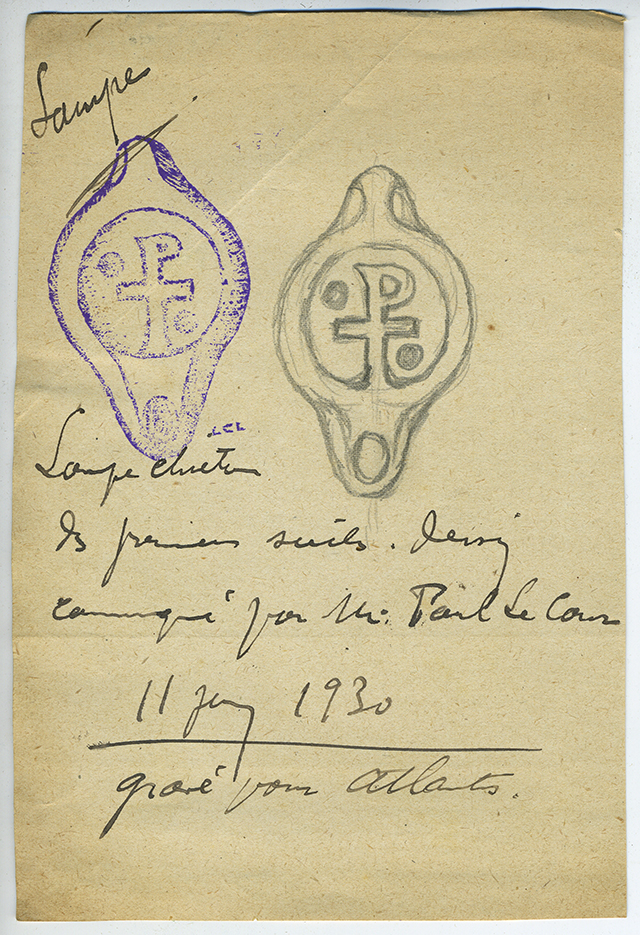 Lampes
LCL
Lampe chretien
des premiers siècles. dessin
communiqué par Mr. Paul Le Cour
11 janv 1930
gravé pour Atlantis.